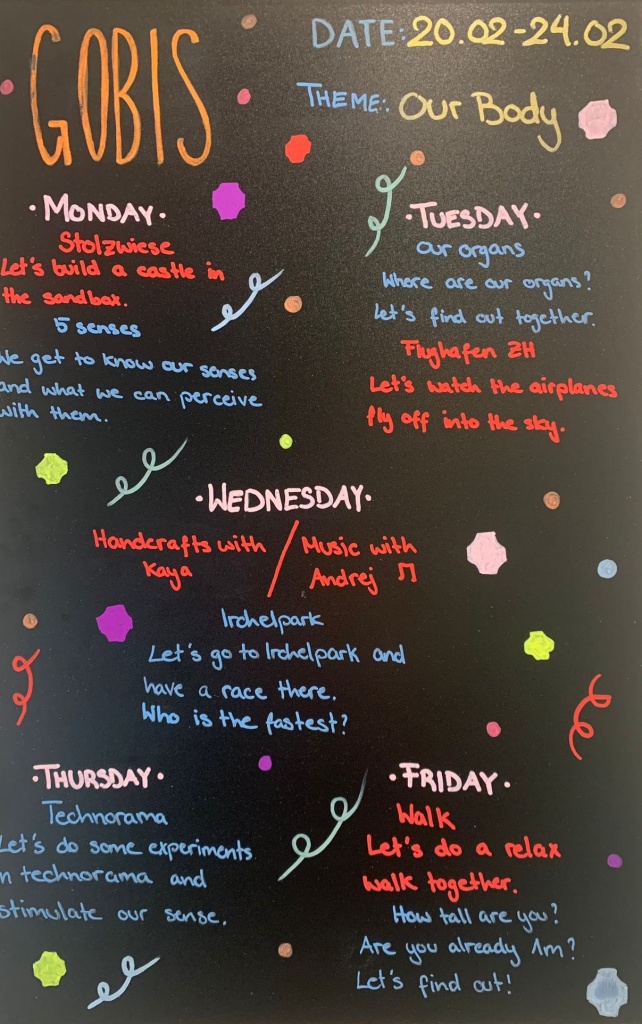 GOBIS
DATE: 20.02-24.02
THEME: Our Body
·MONDAY·
Stolzwiese
Let's build a castle in
the sandbox.
5 senses
We get to know our senses
and what we can perceive
with them.
·TUESDAY·
our organs
Where are our organs?
Let's find out together.
Flughafen ZH
Let's watch the airplanes
fly off into the sky.
·WEDNESDAY·
Handcrafts with / Music with
Kaya Andrej ♫
Irchelpark
Let's go to Irchelpark and
have a race there.
Who is the fastest?
·THURSDAY·
Technorama
Let's do some experiments
in technorama and
stimulate our sense.
·FRIDAY·
Walk
Let's do a relax
walk together.
How tall are you?
Are you already 1m?
Let's find out!